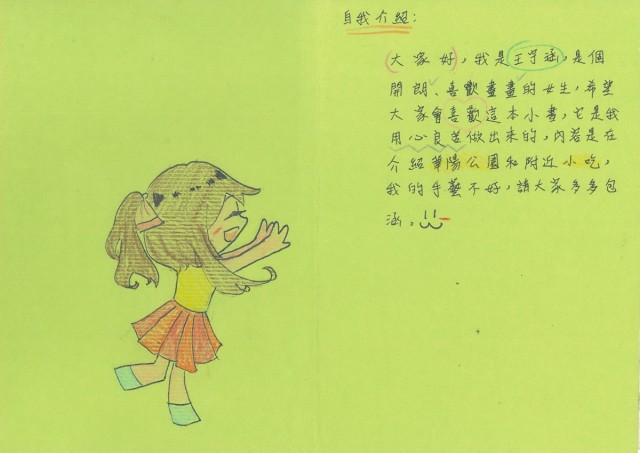 自我介紹：
大家好，我是王宇涵，是個
開朗、喜歡畫畫的女生，希望
大家會喜歡這本小書，它是我
用心良苦做出來的，內容是在
介紹華陽公園和附近小吃，
我的手藝不好，請大家多多包
涵。